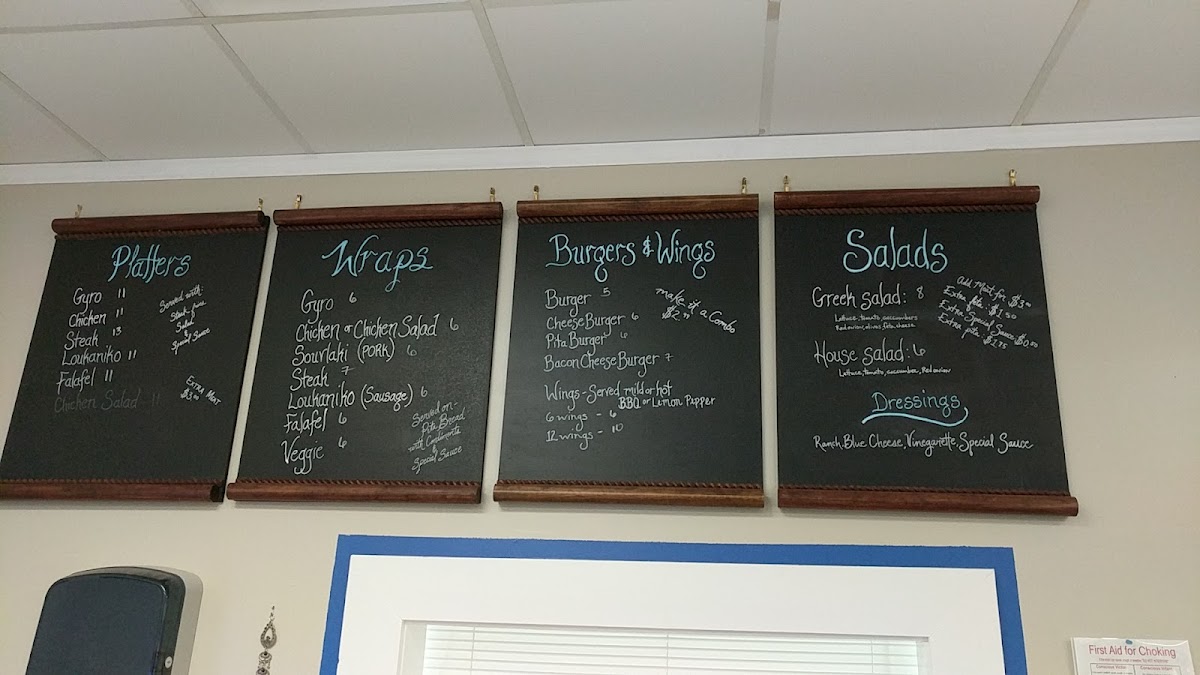 Platters
Gyro 11
Chicken 11
Steak 13
Loukaniko 11
Falafel 11
Chicken Salad - 11
Served with:
Steak-fries
Salad
&
Special Sauce
Extra Meat
$3.00
Wraps
Gyro 6
Chicken or Chicken Salad 6
Sourlaki (PORK) 6
Steak 7
Loukaniko (Sausage) 6
Falafel 6
Veggie 6
Served on-
Pita Bread
with Condiments
&
Special Sauce
Burgers & Wings
Burger 5
Cheese Burger 6
Pita Burger 6
Bacon Cheese Burger 7
make it a Combo
Wings - Served mild or hot
BBQ or Limon Papper
6 wings - 6
12 wings - 10
Salads
Greek salad: 8
Lettuce, tomato, cuccumbers
Red onion, olives, feta, cheese
House salad: 6
Lettuce, tomato, cucumber, Red onion
Add Meat for $3.00
Extra feta: $1.50
Extra Special Sauce $0.50
Extra pita: $2.75
Dressings
Ranch, Blue Cheese, Vinegarette, Special Sauce
First Aid for Choking